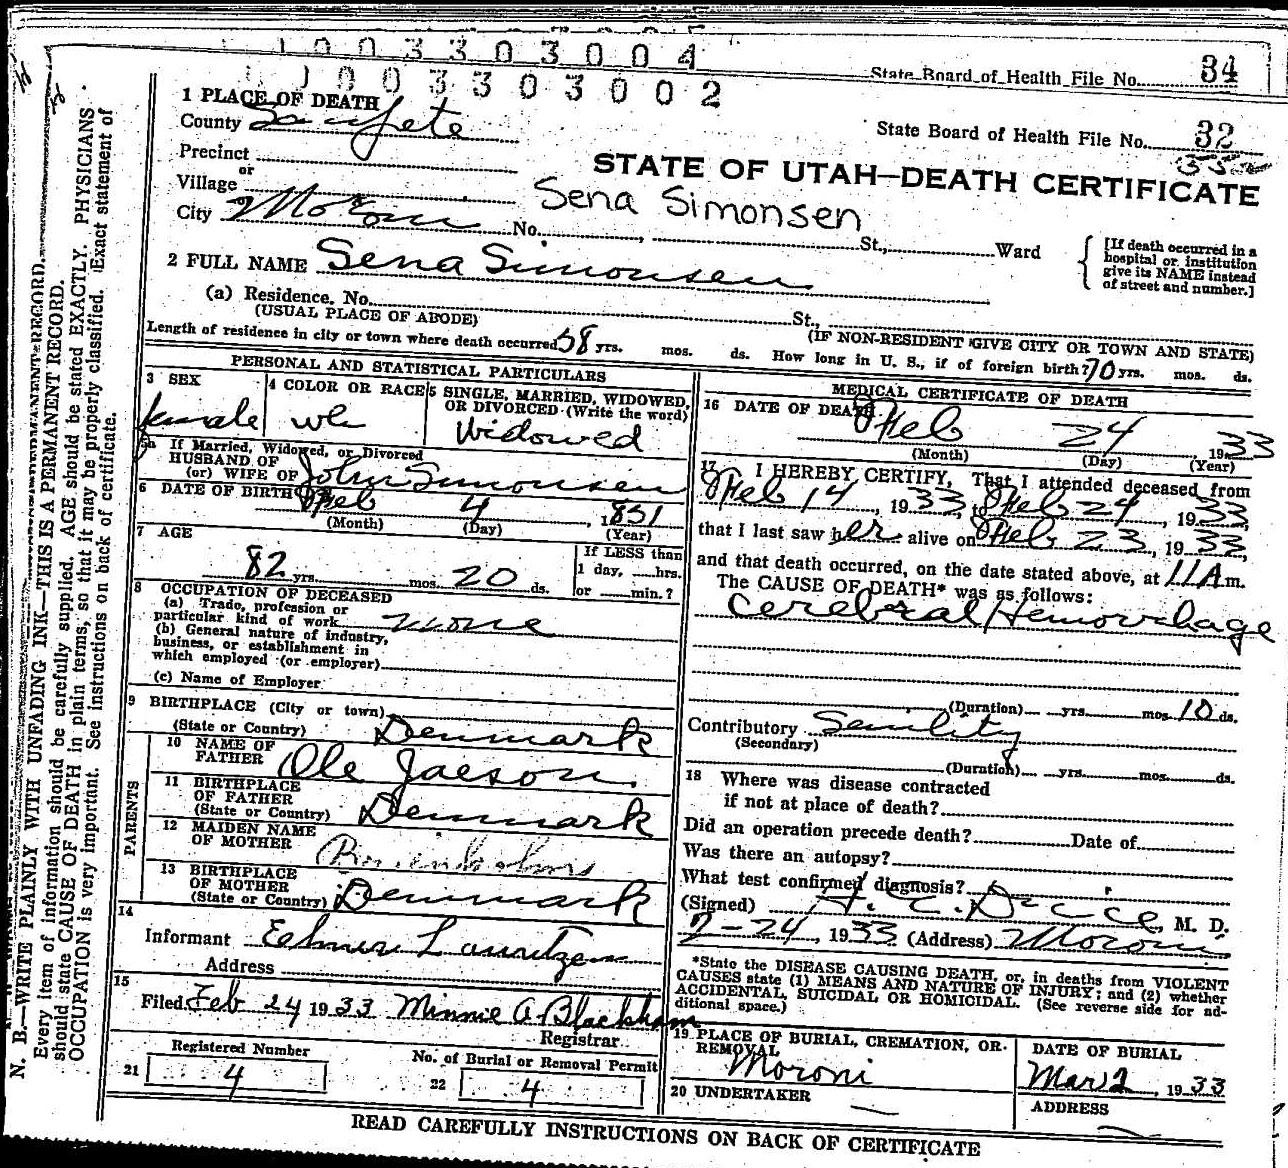 1003303004
State Board of Health File No. 34
1003303002
1 PLACE OF DEATH
County Sanpete
State Board of Health File No. 32
Precinct
or
Village
STATE OF UTAH—DEATH CERTIFICATE
Sena Simonsen
City Moroni No. St., Ward
[If death occurred in a
hospital or institution
give its NAME instead
of street and number.]
2 FULL NAME Sena Simonsen
(a) Residence. No. St.,
(USUAL PLACE OF ABODE) (IF NON-RESIDENT GIVE CITY OR TOWN AND STATE)
Length of residence in city or town where death occurred 58 yrs. mos. ds. How long in U. S., if of foreign birth? 70 yrs. mos. ds.
PERSONAL AND STATISTICAL PARTICULARS
3 SEX
female
4 COLOR OR RACE
wh
5 SINGLE, MARRIED, WIDOWED,
OR DIVORCED (Write the word)
Widowed
5a If Married, Widowed, or Divorced
HUSBAND OF
(or) WIFE OF John Simonsen
6 DATE OF BIRTH Feb 4, 1851
(Month) (Day) (Year)
7 AGE
82 yrs. mos. 20 ds.
If LESS than
1 day, hrs.
or min.?
8 OCCUPATION OF DECEASED
(a) Trade, profession or
particular kind of work none
(b) General nature of industry,
business, or establishment in
which employed (or employer)
(c) Name of Employer
9 BIRTHPLACE (City or town)
(State or Country) Denmark
PARENTS
10 NAME OF
FATHER Ole
11 BIRTHPLACE
OF FATHER
(State or Country) Denmark
12 MAIDEN NAME
OF MOTHER
13 BIRTHPLACE
OF MOTHER
(State or Country) Denmark
14
Informant Elmer Lauritzen
Address
15
Filed Feb 24 1933 Minnie A Blackham
Registrar
Registered Number
21 4
No. of Burial or Removal Permit
22 4
MEDICAL CERTIFICATE OF DEATH
16 DATE OF DEATH Feb 24, 1933
(Month) (Day) (Year)
17 I HEREBY CERTIFY, That I attended deceased from
Feb 14, 1933, to Feb 24, 1933,
that I last saw her alive on Feb 23, 1933,
and that death occurred, on the date stated above, at 11 A m.
The CAUSE OF DEATH* was as follows:
Cerebral Hemorrhage
(Duration) yrs. mos. 10 ds.
Contributory Senility
(Secondary)
(Duration) yrs. mos. ds.
18 Where was disease contracted
if not at place of death?
Did an operation precede death? Date of
Was there an autopsy?
What test confirmed diagnosis?
(Signed) M. D.
2-24, 1933 (Address) Moroni
*State the DISEASE CAUSING DEATH, or, in deaths from VIOLENT
CAUSES state (1) MEANS AND NATURE OF INJURY; and (2) whether
ACCIDENTAL, SUICIDAL OR HOMICIDAL. (See reverse side for ad-
ditional space.)
19 PLACE OF BURIAL, CREMATION, OR
REMOVAL
Moroni
DATE OF BURIAL
Mar 2, 1933
20 UNDERTAKER
ADDRESS
READ CAREFULLY INSTRUCTIONS ON BACK OF CERTIFICATE
N. B.—WRITE PLAINLY WITH UNFADING INK—THIS IS A PERMANENT RECORD.
Every item of information should be carefully supplied. AGE should be stated EXACTLY. PHYSICIANS
should state CAUSE OF DEATH in plain terms, so that it may be properly classified. Exact statement of
OCCUPATION is very important. See instructions on back of certificate.